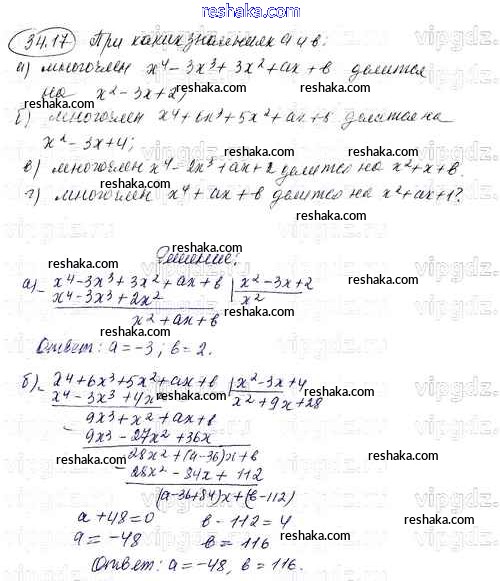 reshak.ru
34.17 При каких значениях a и b:
а) многочлен x⁴ - 3x³ + 3x² + ax + b делится
на x² - 3x + 2;
б) многочлен x⁴ + 6x³ + 5x² + ax + b делится на
x² - 3x + 4;
в) многочлен x⁴ - 2x³ + ax + 2 делится на x² + x + b.
г) многочлен x⁴ + ax + b делится на x² + ax + 1?
Решение:
а) - x⁴ - 3x³ + 3x² + ax + b | x² - 3x + 2
x⁴ - 3x³ + 2x² | x²
x² + ax + b
Ответ: a = -3; b = 2.
б) - x⁴ + 6x³ + 5x² + ax + b | x² - 3x + 4
x⁴ - 3x³ + 4x² | x² + 9x + 28
- 9x³ + x² + ax + b
9x³ - 27x² + 36x
- 28x² + (a-36)x + b
28x² - 84x + 112
(a-36+84)x + (b-112)
a + 48 = 0 b - 112 = 4
a = -48 b = 116
Ответ: a = -48, b = 116.